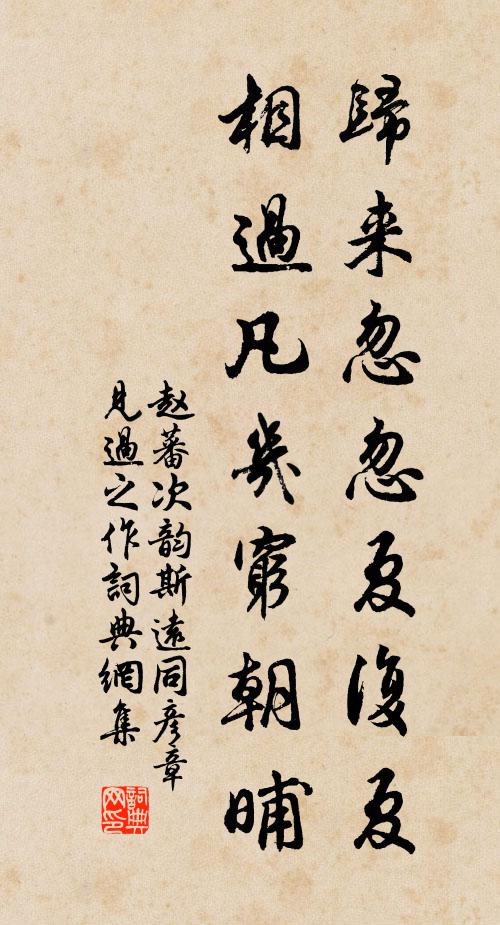 歸来忽忽夏復夏
相過凡幾窮朝晡
赵蕃次韵斯遠同彦章
見過之作詞典網集
詞典网印